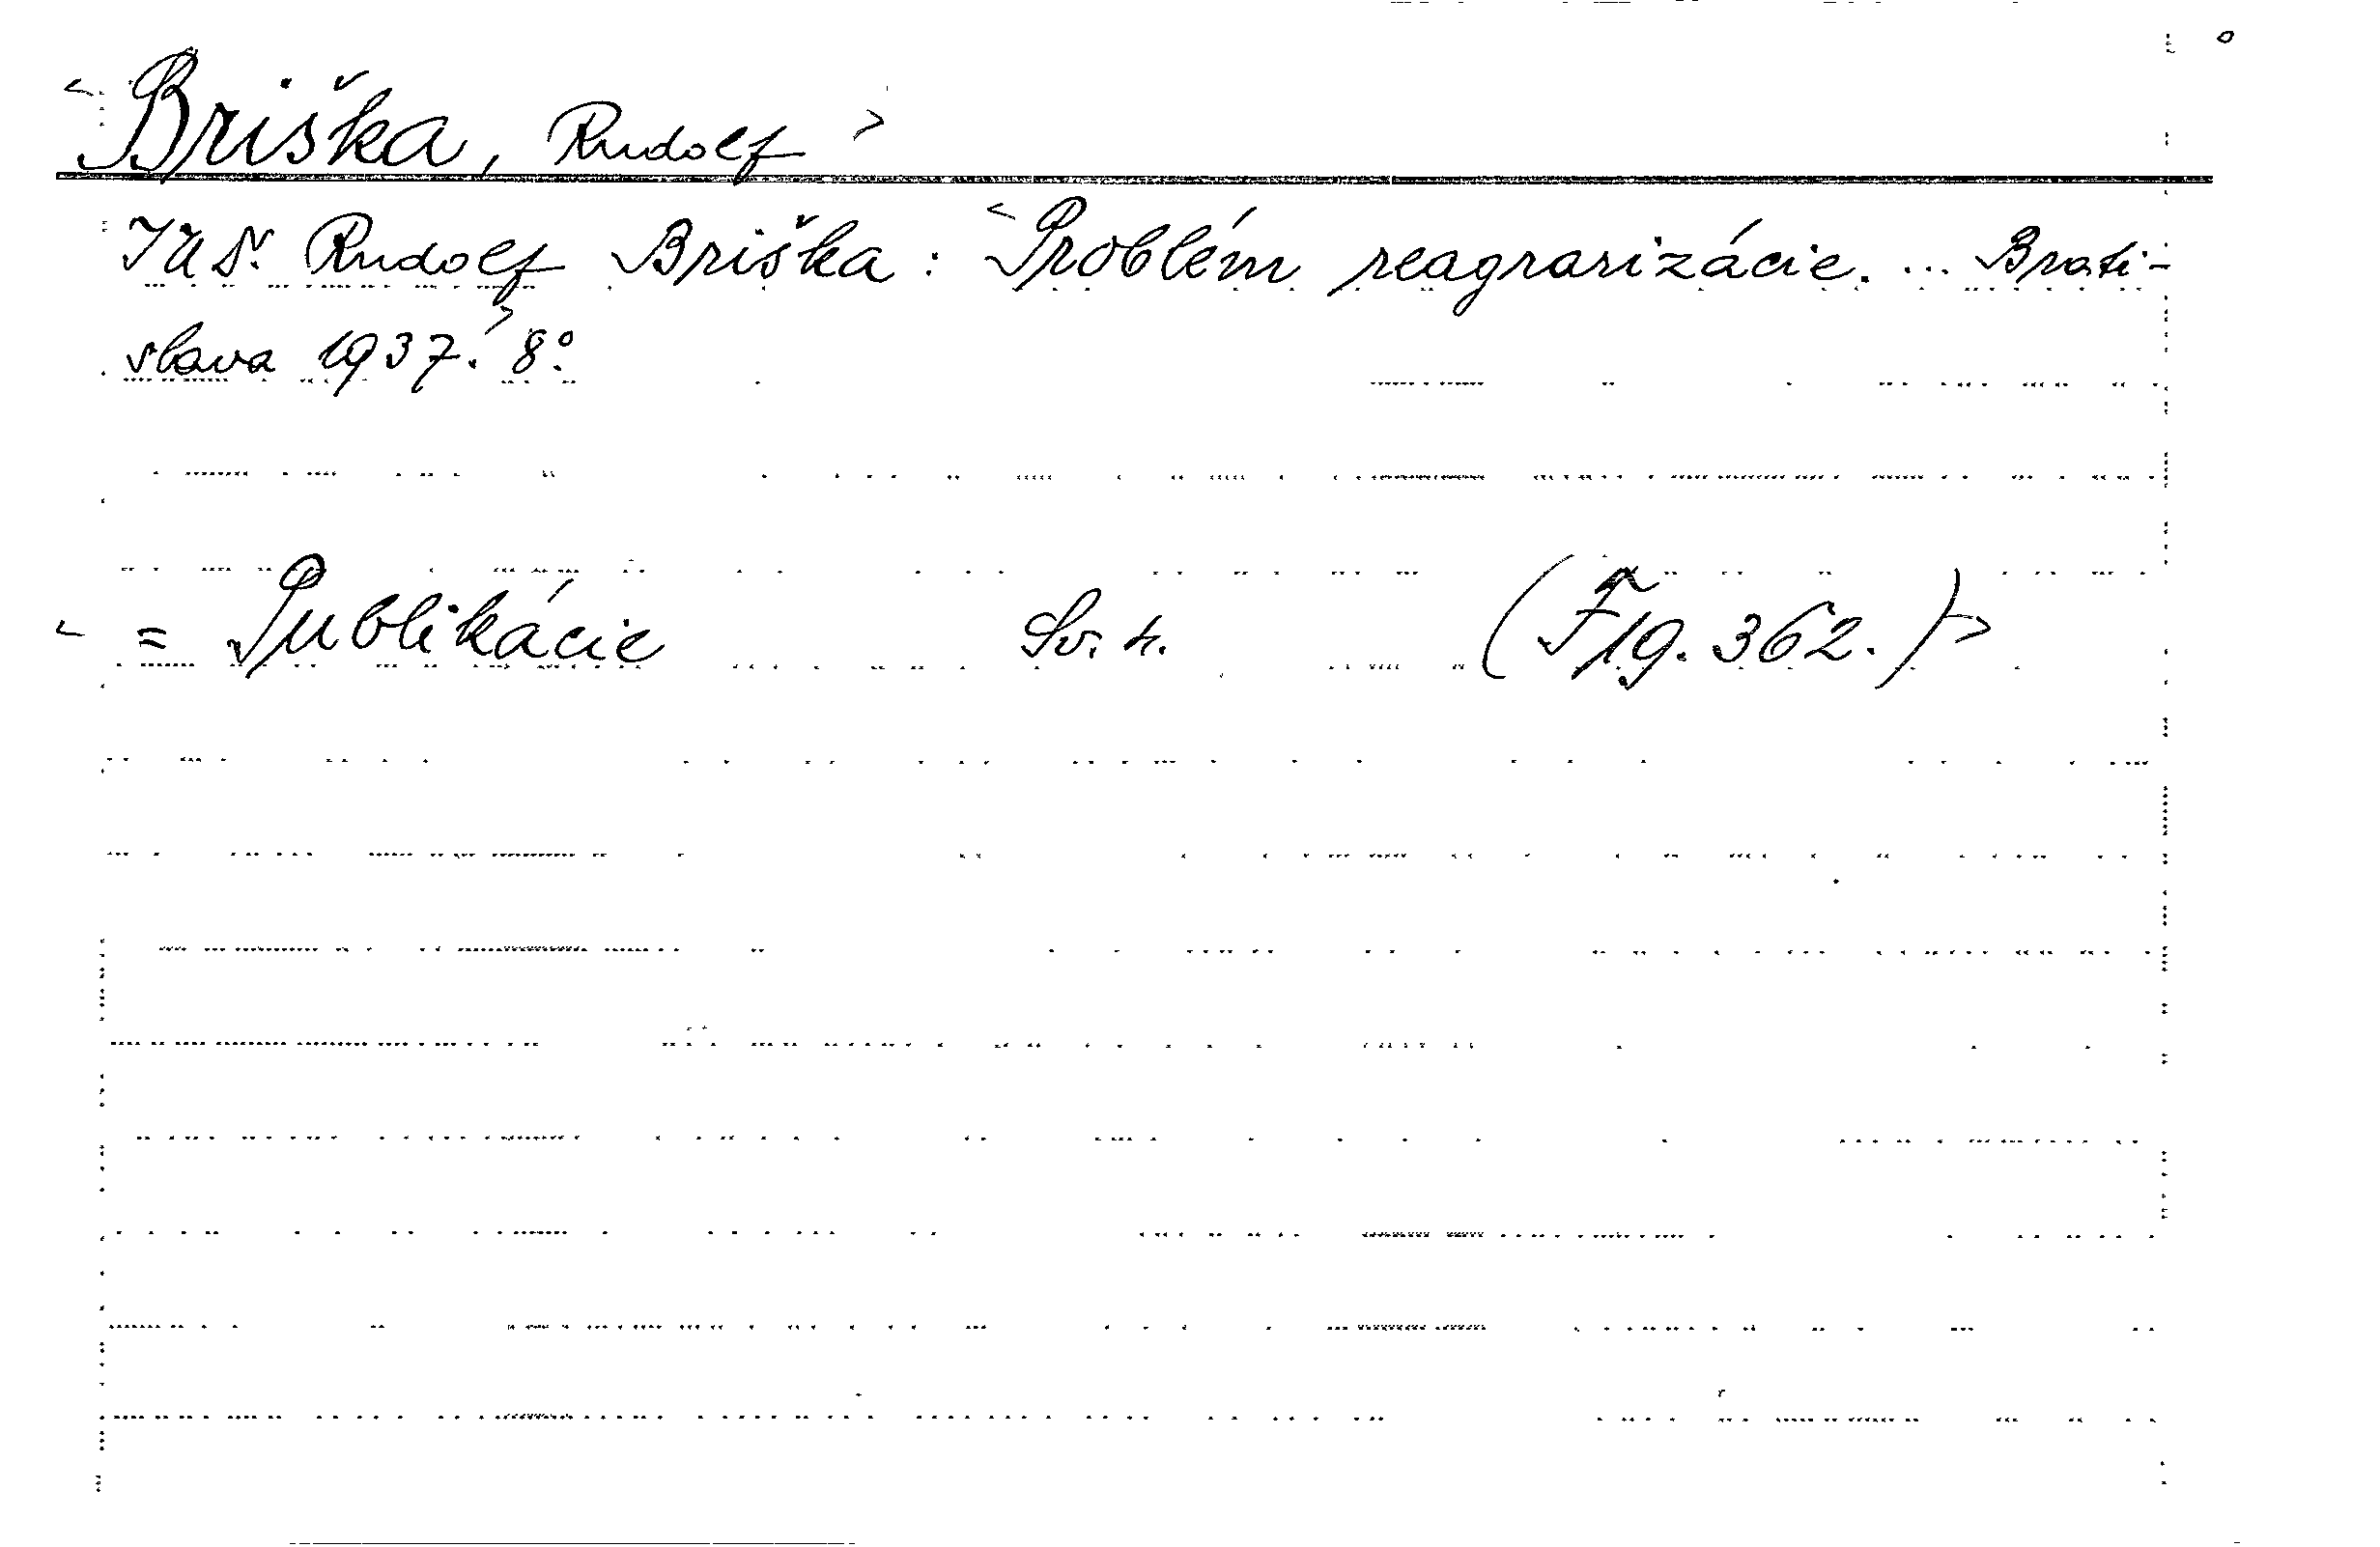 <Briška, Rudolf>
JUDr. Rudolf Briška: <Problém reagrarizácie. ... Brati-
slava 1937.> 8°.
<= Publikácie Sv. 4. (F 19.362.)>